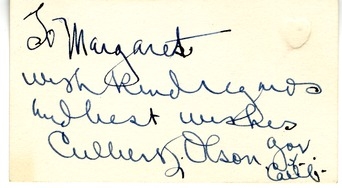 To Margaret
with kind regards
and best wishes
Culbert L. Olson gov
Calif.